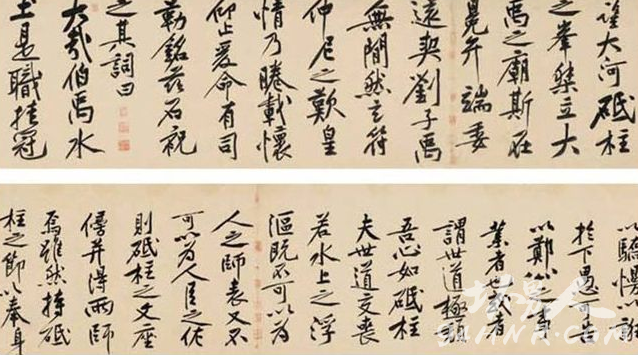 維大河砥柱
之峯桀立大
禹之廟斯在
冕弁端委
遠契劉子禹
無間然玄符
仲尼之歎皇
情乃睠載懷
仰止爰命有司
勒銘茲石祝
之其詞曰
大哉伯禹水
土是職挂冠
以驕慢之
於下愚可告
以鄭公之事
業者也或者
謂世道極頹
吾心如砥柱
夫世道交喪
若水上之浮
漚既不可以為
人之師表又不
可以為人臣之佐
則砥柱之文座
傍并得兩師
焉雖然持砥
柱之節以奉身